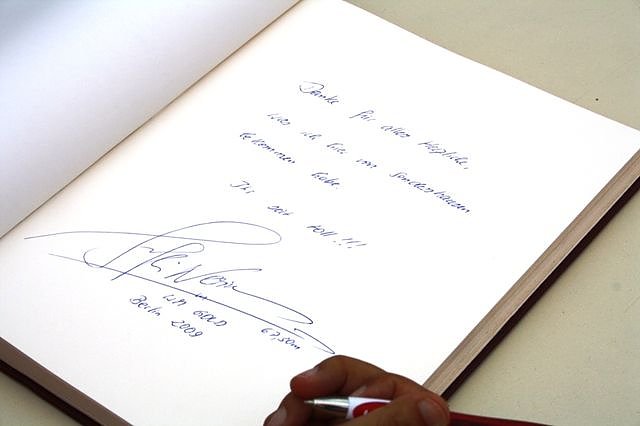 Danke für alles Herzliche,
was ich hier von Sondershausen
bekommen habe.
Ihr seit toll!!!
Steffi Nerius
WM GOLD 67,30m
Berlin 2009